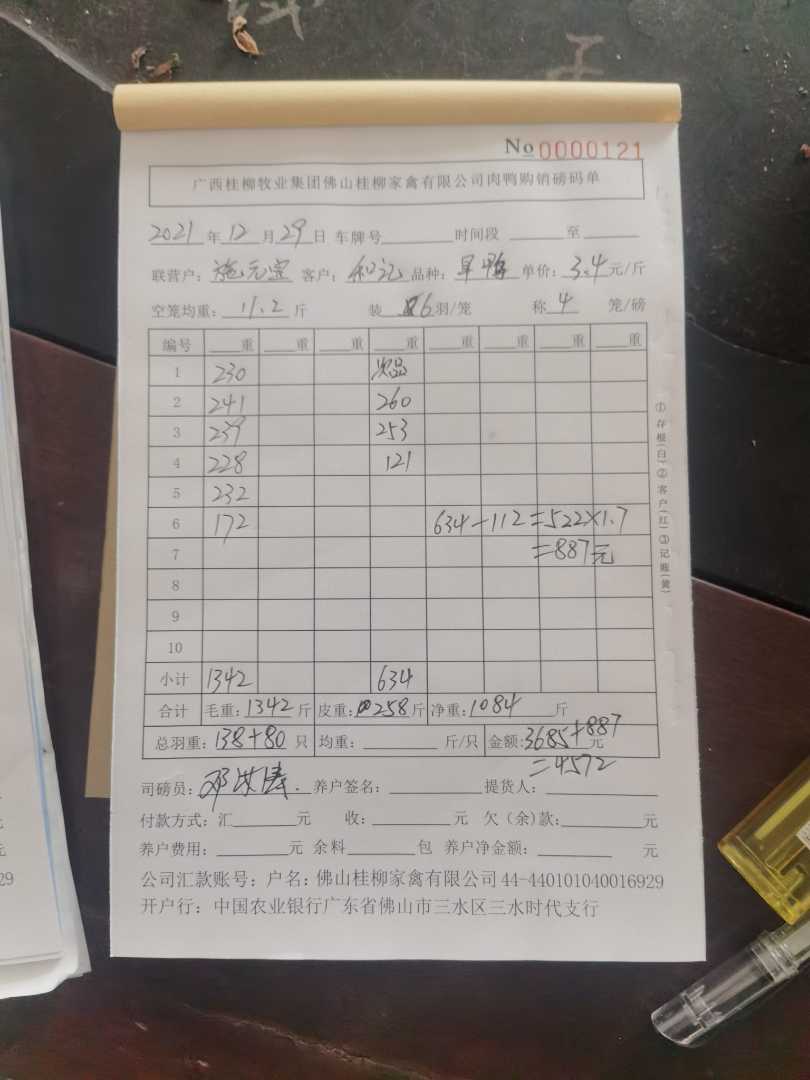 No 0000121
广西桂柳牧业集团佛山桂柳家禽有限公司肉鸭购销磅码单
2021年12月29日 车牌号 时间段 至
联营户：施元宝 客户：和记 品种：旱鸭 单价：3.4元/斤
空笼均重：11.2斤 装 6羽/笼 称 4 笼/磅
编号 重 重 重 重 重 重 重 重
1 230 次品
2 241 260
3 239 253
4 228 121
5 232
6 172 634-112=522×1.7
7 =887元
8
9
10
小计 1342 634
合计 毛重：1342斤 皮重：258斤 净重：1084斤
总羽重：138+80只 均重： 斤/只 金额：3685+887元
=4572
司磅员：邓洪涛. 养户签名： 提货人：
付款方式：汇 元 收： 元 欠（余）款： 元
养户费用： 元 余料 包 养户净金额： 元
公司汇款账号：户名：佛山桂柳家禽有限公司44-440101040016929
开户行：中国农业银行广东省佛山市三水区三水时代支行
①存根(白)②客户(红)③记账(黄)
元
元
29